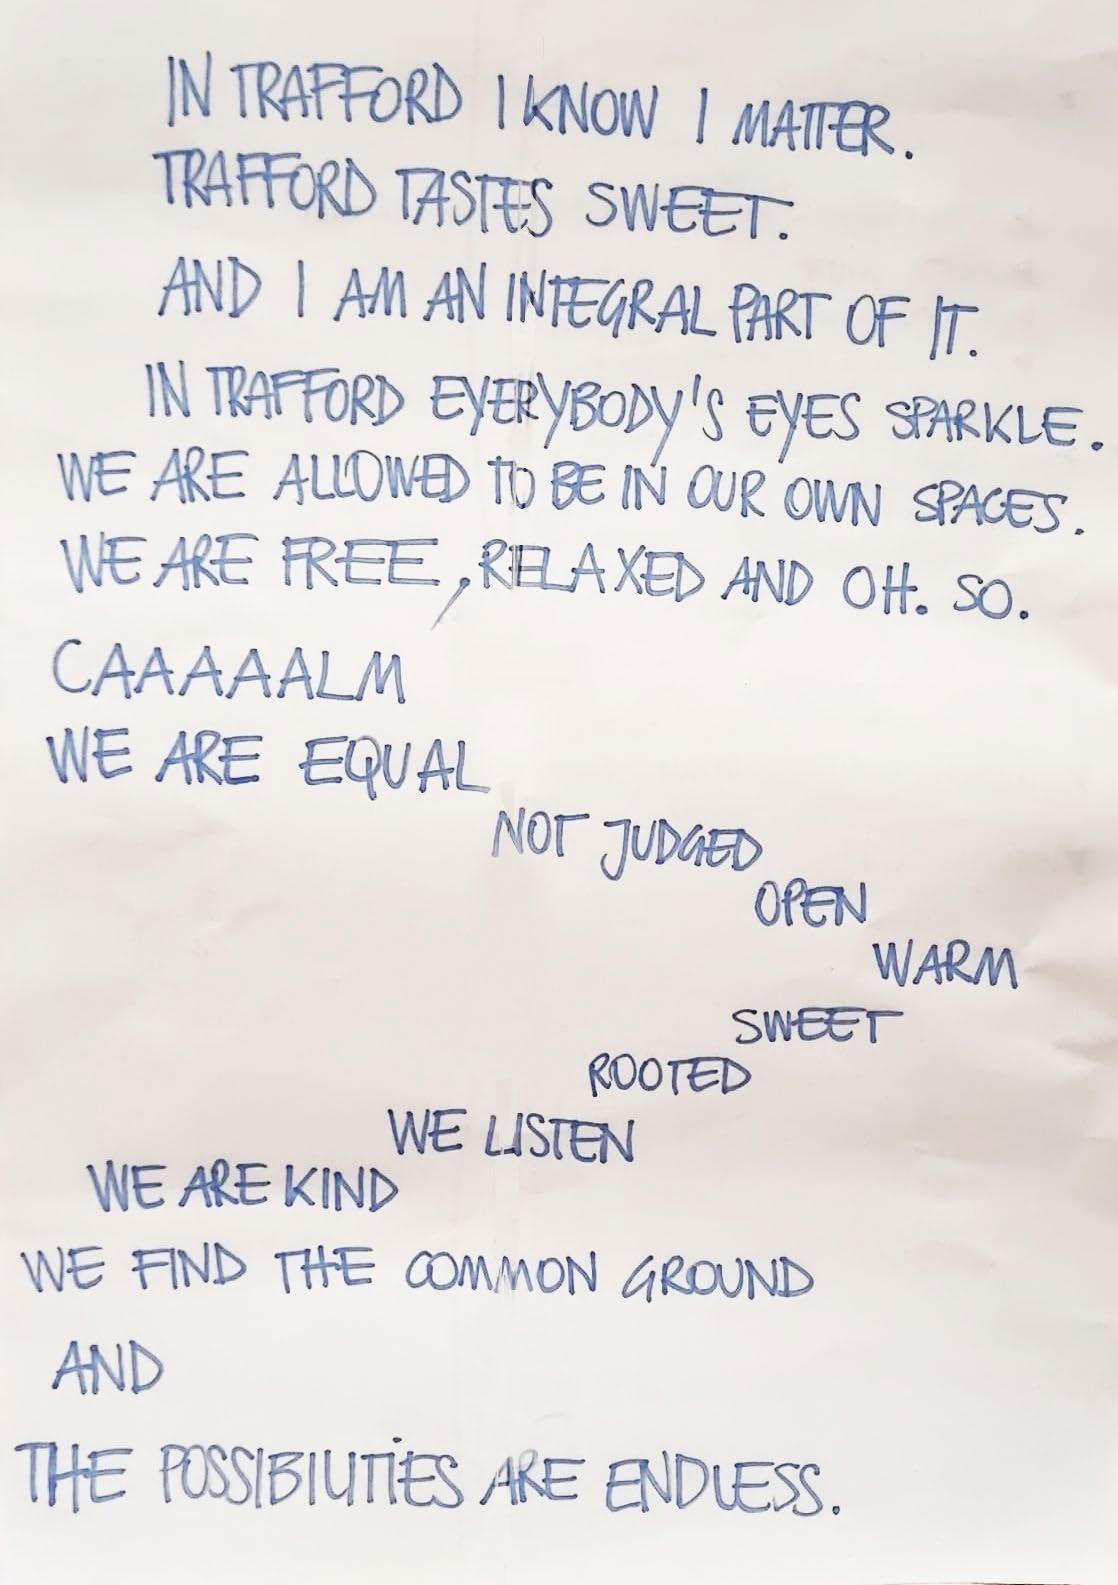 IN TRAFFORD I KNOW I MATTER.
TRAFFORD TASTES SWEET.
AND I AM AN INTEGRAL PART OF IT.
IN TRAFFORD EVERYBODY'S EYES SPARKLE.
WE ARE ALLOWED TO BE IN OUR OWN SPACES.
WE ARE FREE, RELAXED AND OH. SO.
CAAAAALM
WE ARE EQUAL
NOT JUDGED
OPEN
WARM
SWEET
ROOTED
WE LISTEN
WE ARE KIND
WE FIND THE COMMON GROUND
AND
THE POSSIBILITIES ARE ENDLESS.